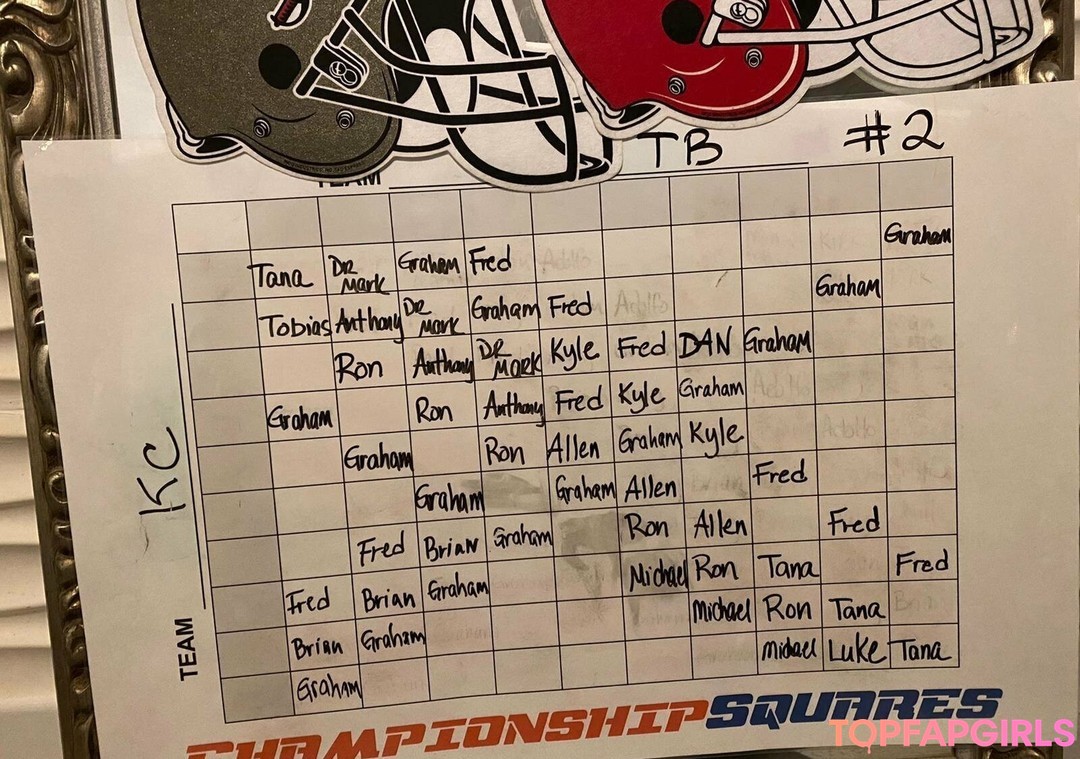 TB #2
TEAM
Tana DR Mark Graham Fred Graham
Tobias Anthony DR Mark Graham Fred Graham
Ron Anthony DR MARK Kyle Fred DAN Graham
Graham Ron Anthony Fred Kyle Graham
Graham Ron Allen Graham Kyle
Graham Graham Allen Fred
Fred Brian Graham Ron Allen Fred
Fred Brian Graham Michael Ron Tana Fred
Brian Graham Michael Ron Tana
Graham Michael Luke Tana
KC
TEAM
CHAMPIONSHIP SQUARES
TOPFAPGIRLS